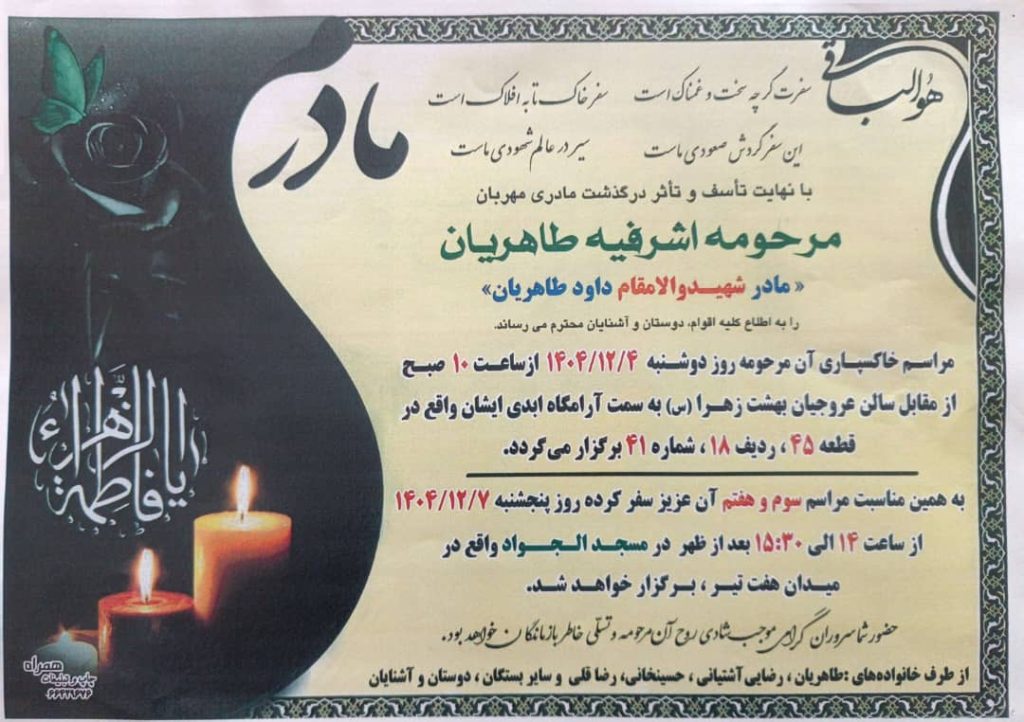 هُوَالباقی
مادر
سفرت گرچه سخت و غمناک است سفر خاک تا به افلاک است
این سفر گردش صعودی ماست سیر در عالم شهودی ماست
با نهایت تأسف و تأثر درگذشت مادری مهربان
مرحومه اشرفیه طاهریان
« مادر شهیدوالامقام داود طاهریان»
را به اطلاع کلیه اقوام، دوستان و آشنایان محترم می رساند.
مراسم خاکسپاری آن مرحومه روز دوشنبه ۱۴۰۴/۱۲/۴ ازساعت ۱۰ صبح
از مقابل سالن عروجیان بهشت زهرا (س) به سمت آرامگاه ابدی ایشان واقع در
قطعه ۴۵ ، ردیف ۱۸ ، شماره ۴۱ برگزار می‌گردد.
به همین مناسبت مراسم سوم و هفتم آن عزیز سفر کرده روز پنجشنبه ۱۴۰۴/۱۲/۷
از ساعت ۱۴ الی ۱۵:۳۰ بعد از ظهر در مسجد الجواد واقع در
میدان هفت تیر ، برگزار خواهد شد.
حضور شما سروران گرامی موجب شادی روح آن مرحومه و تسلی خاطر بازماندگان خواهد بود.
از طرف خانواده‌های :طاهریان ، رضایی‌آشتیانی ، حسینخانی، رضا قلی و سایر بستگان ، دوستان و آشنایان
یا فاطمة الزهراء
همراه
چاپ و تبلیغات